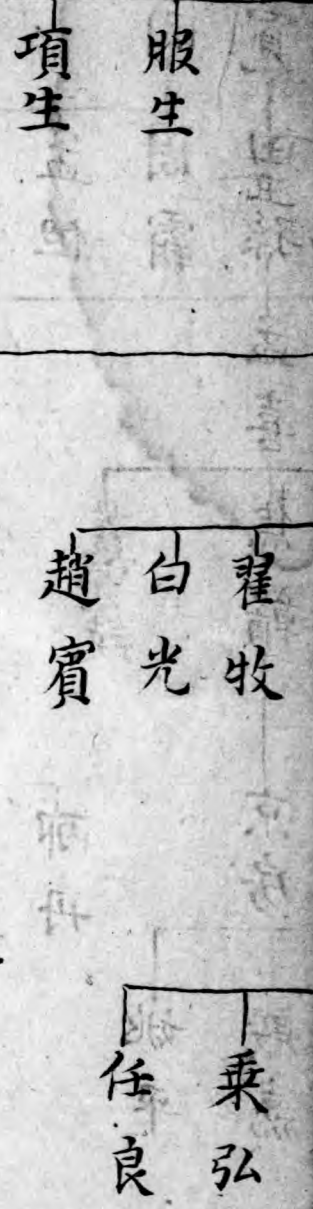 服生
項生
翟牧
白光
趙賓
乗弘
任良